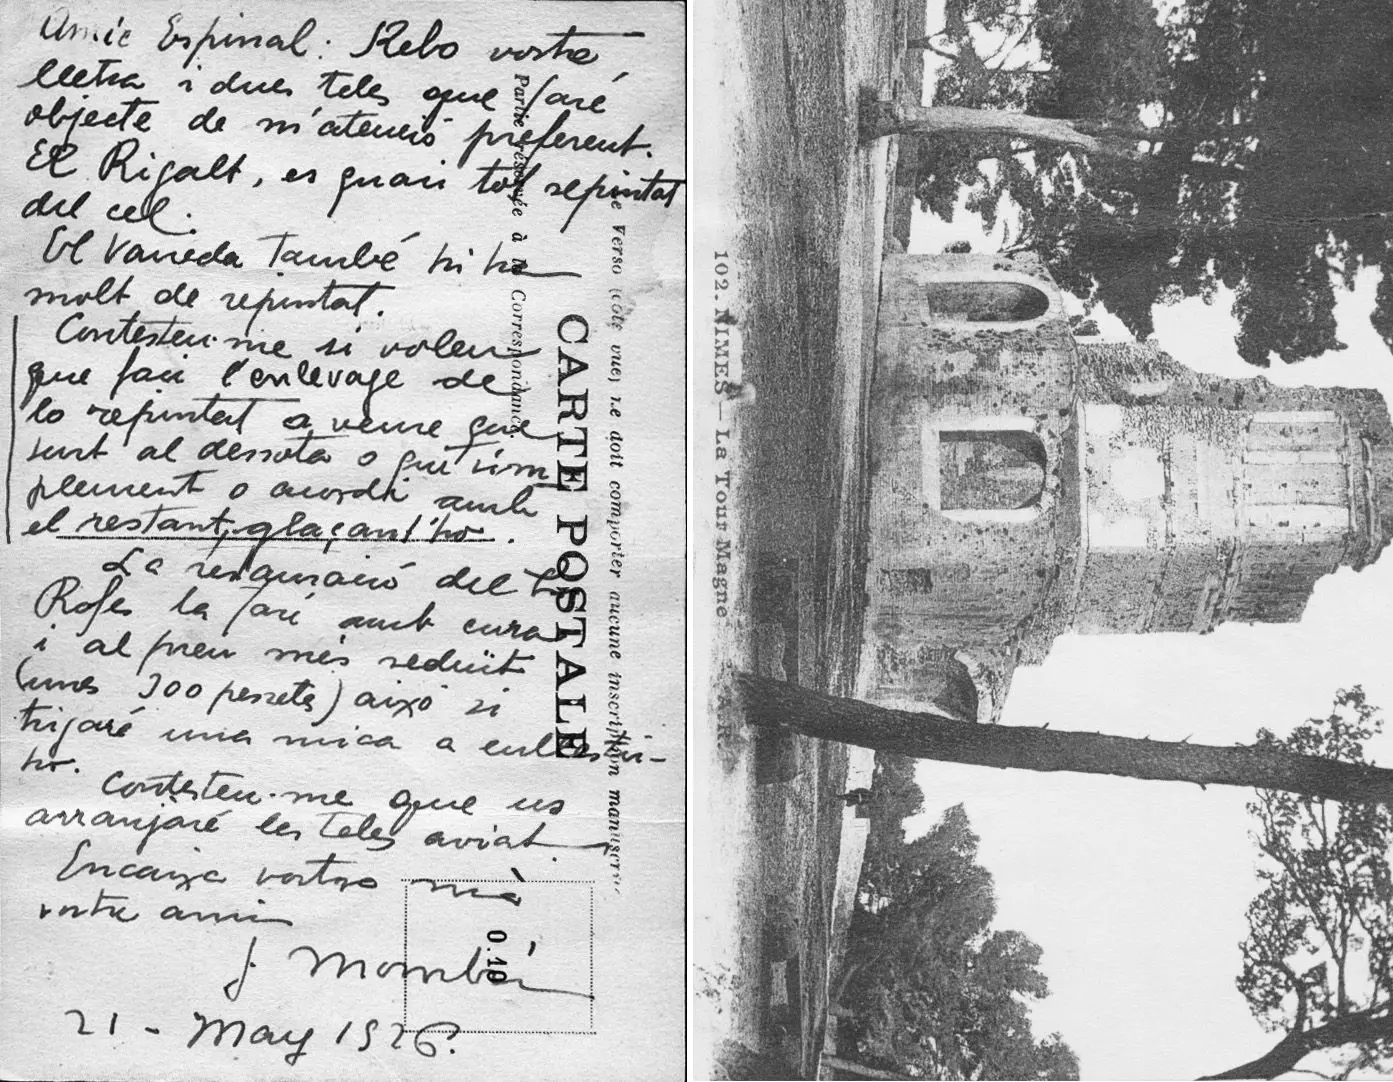 Amic Espinal. Rebo vostra
lletra i dues teles que faré
objecte de m'atenció preferent.
El Rigalt, es quasi tot repintat
del cel.
El Vayreda també hi ha
molt de repintat.
Contesteu-me si voleu
que faci l'enlevage de
lo repintat a veure que
surt al dessota o que sim
plement o acordi amb
el restant, glaçant-ho.
La restauració del
Roses la faré amb cura
i al preu més reduït
(unes 300 pessetes) això si
trigaré una mica a enllesti-
ho.
Contesteu-me que us
arranjaré les teles aviat.
Encaixa vostra mà
vostre amic
J. Mombrú
21 - May 1926.
CARTE POSTALE
Partie réservée à la Correspondance.
Le Verso (côté vue) ne doit comporter aucune inscription manuscrite
0.10
102. NIMES — La Tour Magne
A. R.